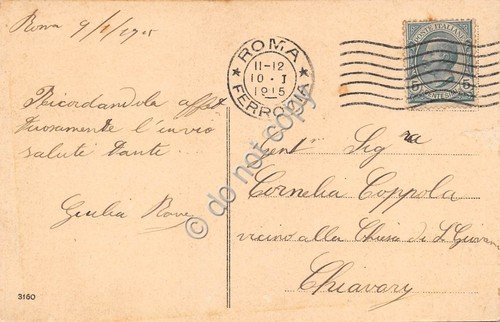 Roma 9/1/1915
Ricordandola affet
tuosamente l'invio
saluti tante
Giulia
3160
ROMA
11-12
10·I
1915
FERROVIA
POSTE ITALIANE
5 5
Gent. Sig.ra
Cornelia Coppola
vicino alla Chiesa di S. Giovanni
Chiavary
do not copy